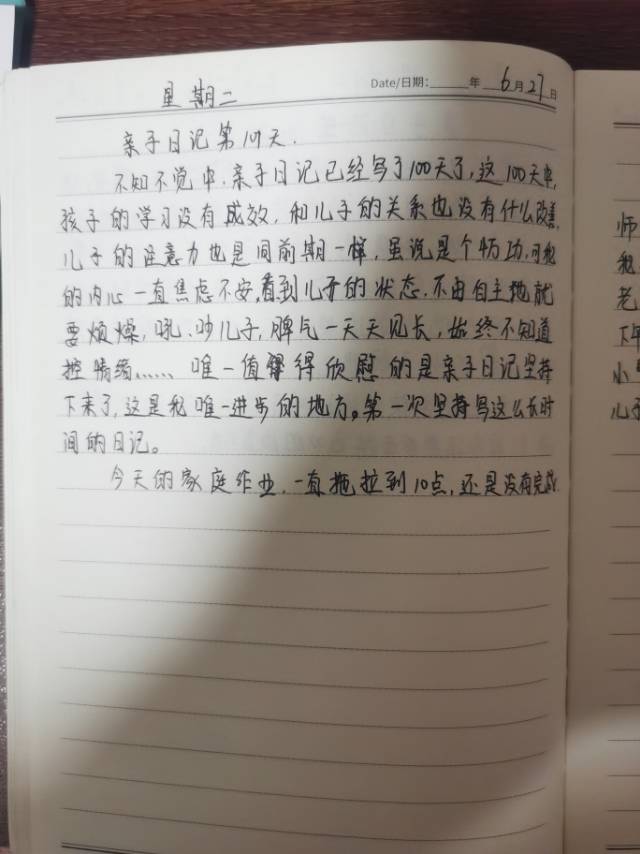 星期二 Date/日期: 年 6月27日
亲子日记第101天.
不知不觉中.亲子日记已经写了100天了,这100天中,
孩子的学习没有成效,和儿子的关系也没有什么改善,
儿子的注意力也是同前期一样,虽说是个慢功.可我
的内心一直焦虑不安,看到儿子的状态.不由自主地就
要烦燥,吼.吵儿子,脾气一天天见长,始终不知道
控情绪…… 唯一值得欣慰的是亲子日记坚持
下来了,这是我唯一进步的地方。第一次坚持写这么长时
间的日记。
今天的家庭作业.一直拖拉到10点,还是没有完成.
师
我
老
下午
小
儿子